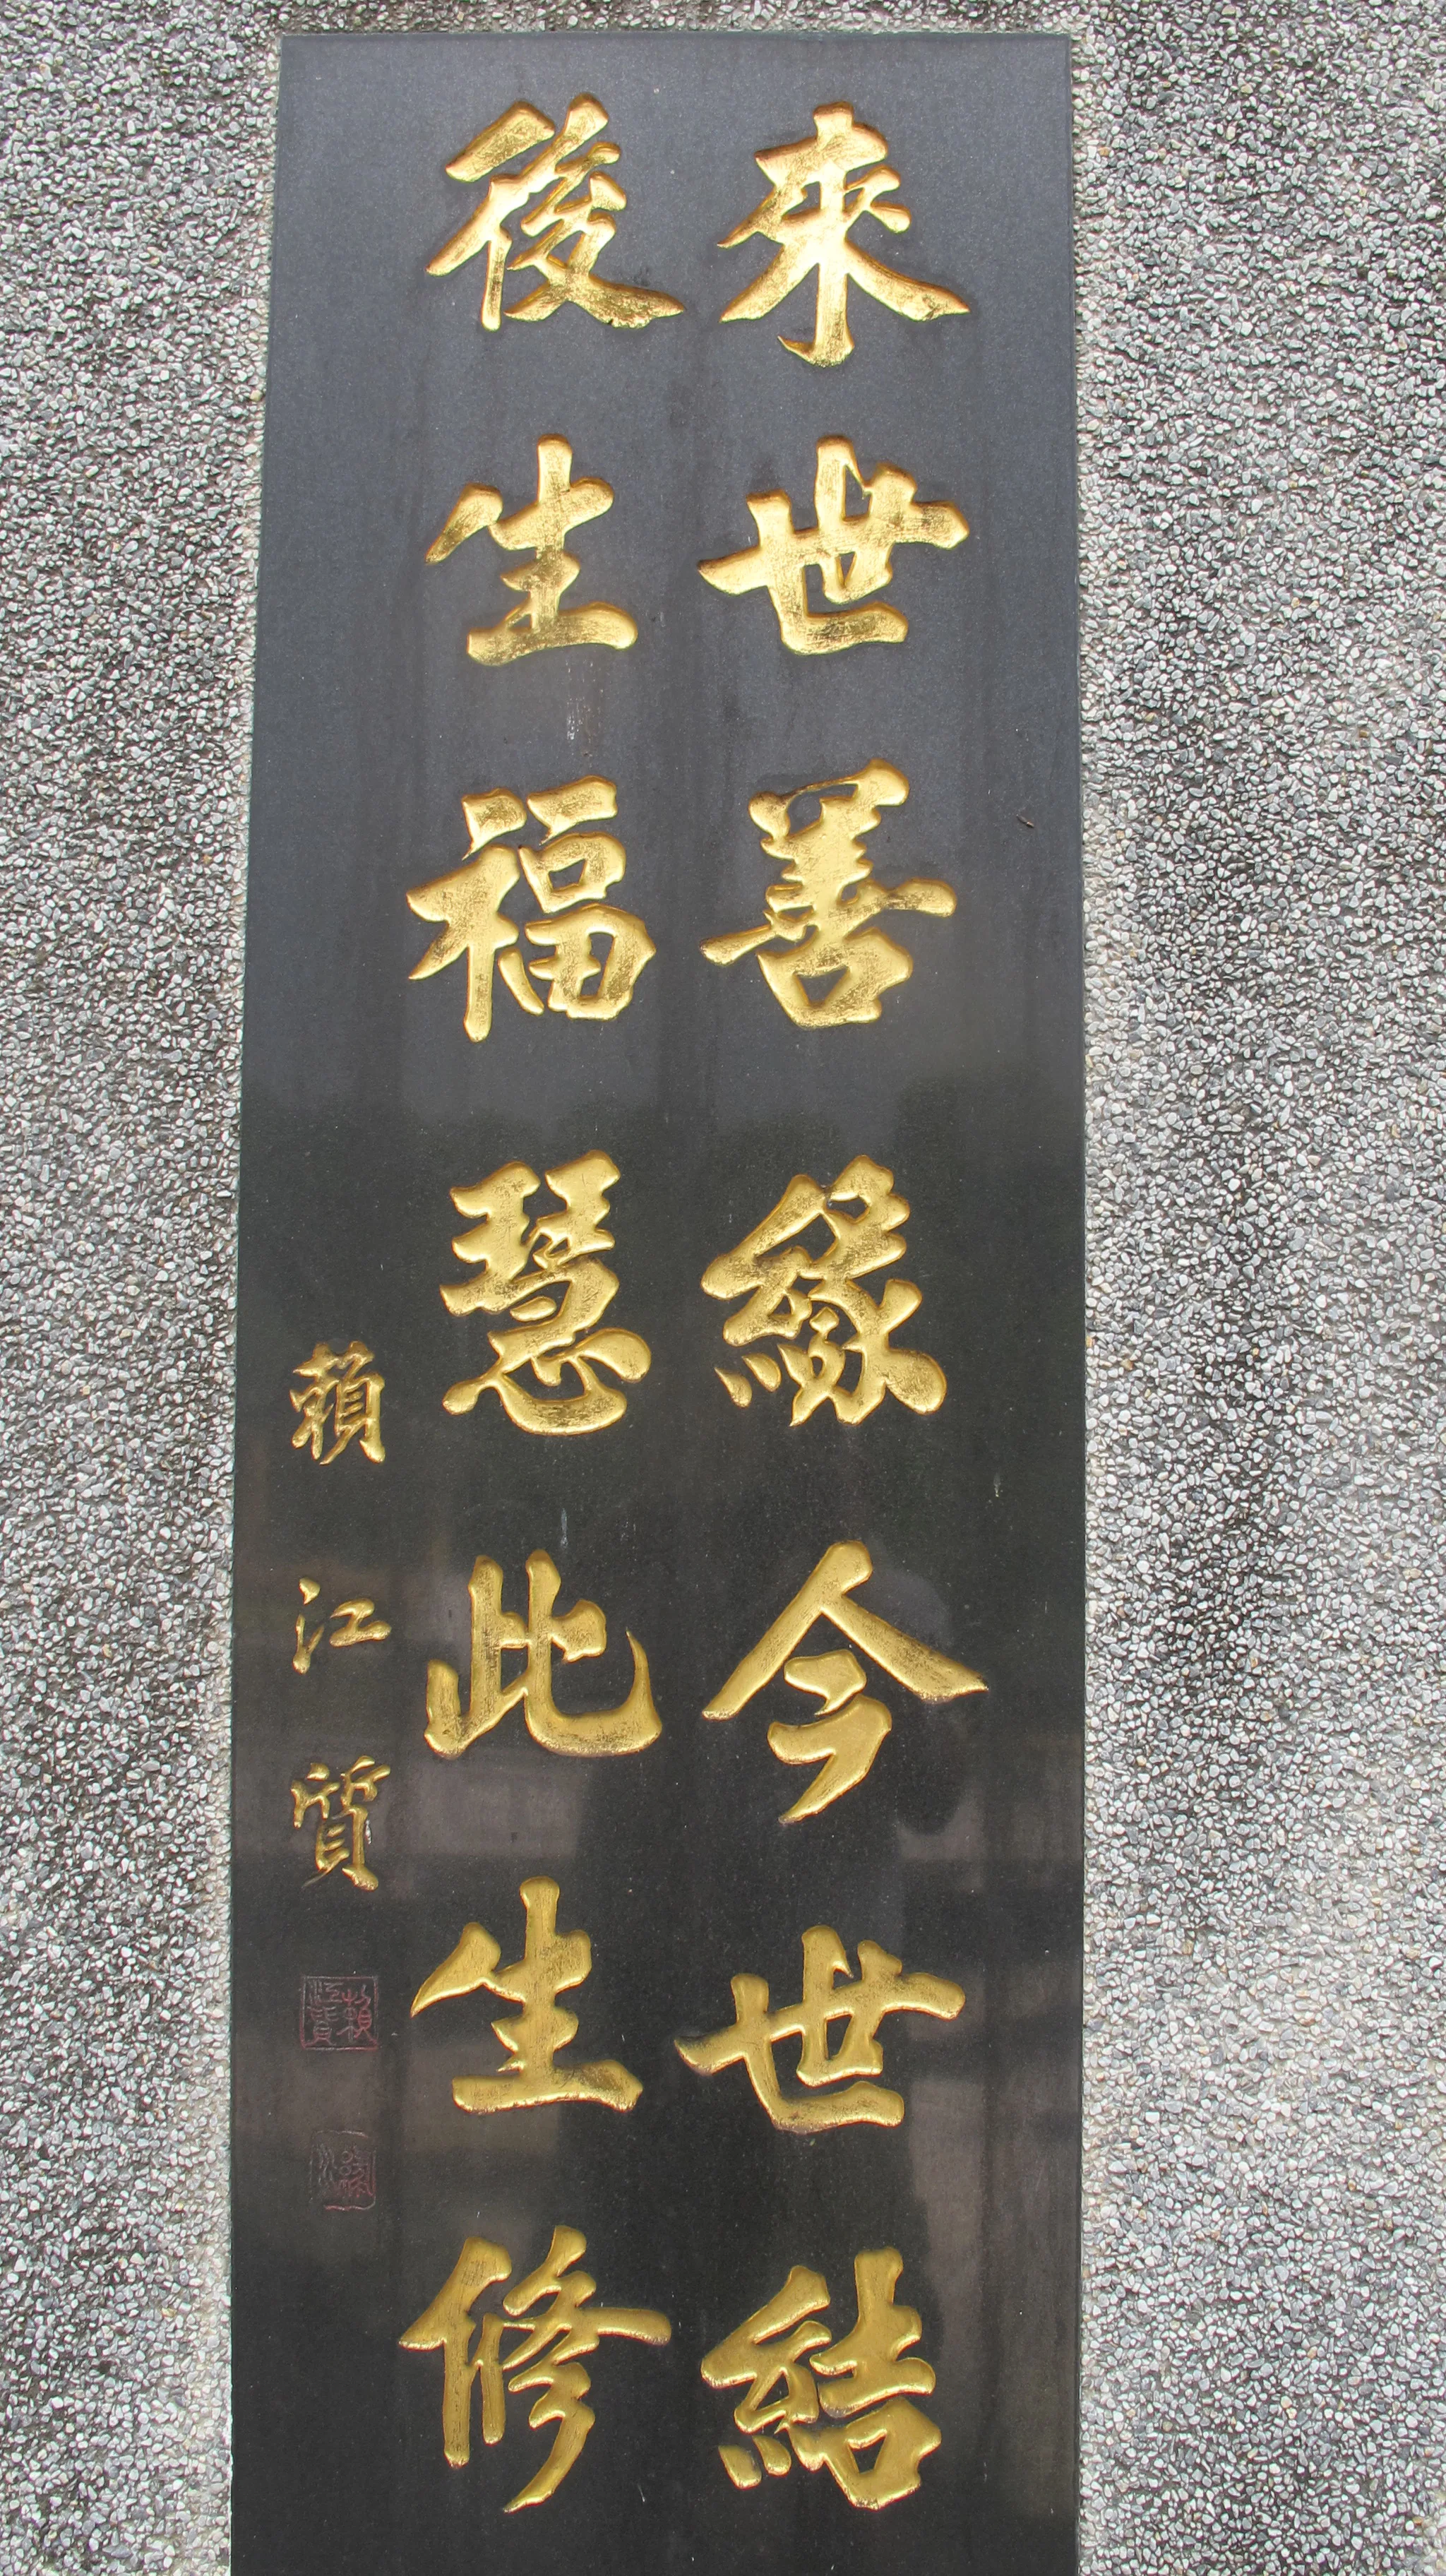 來世善緣今世結
後生福慧此生修
賴江質
賴江質